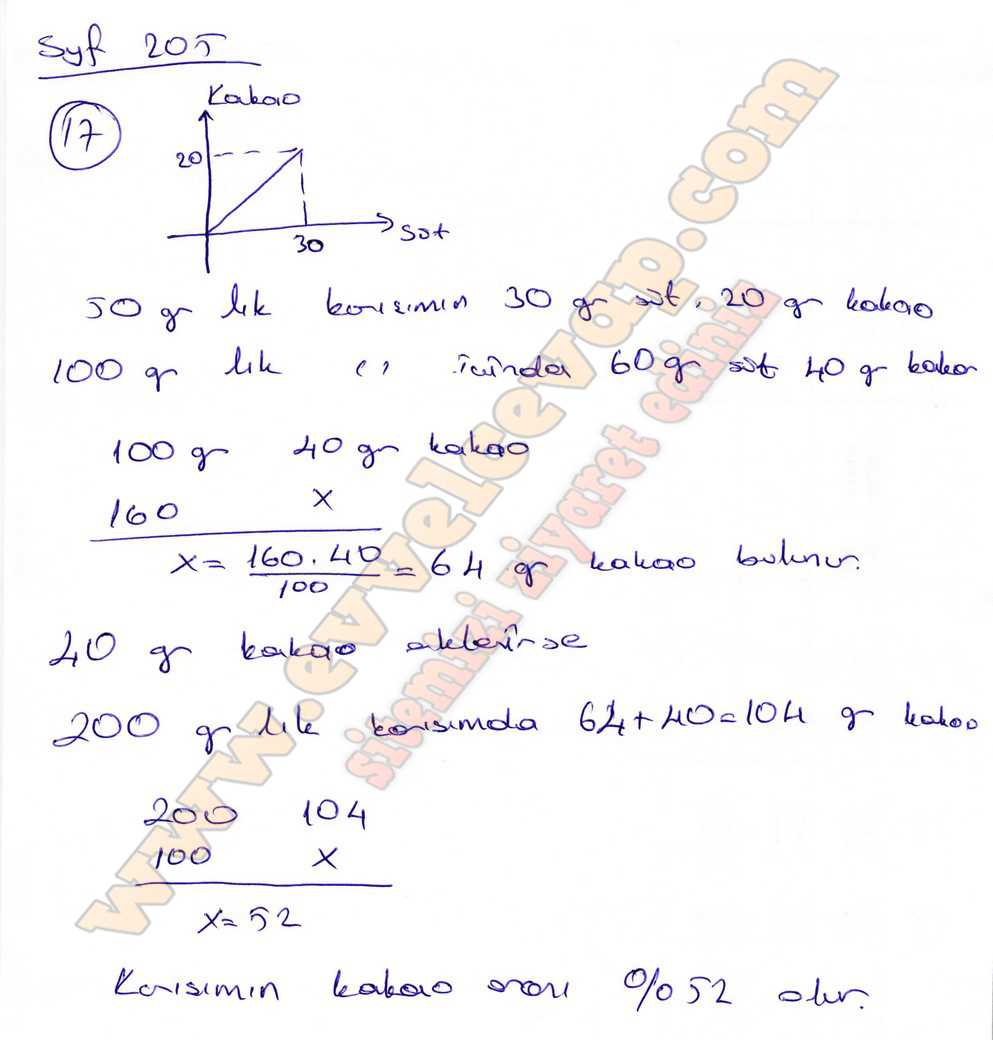 Syf 205
17
Kakao
20
30
süt
50 gr lık karışımın 30 gr süt, 20 gr kakao
100 gr lık " içinda 60 gr süt 40 gr kakao
100 gr 40 gr kakao
160 x
x = 160.40 / 100 = 64 gr kakao bulunur.
40 gr kakao eklenirse
200 gr lık karısımda 64+40=104 gr kakao
200 104
100 x
x= 52
Karısımın kakao oranı %52 olur.
www.evvelcevap.com
sitemizi ziyaret ediniz